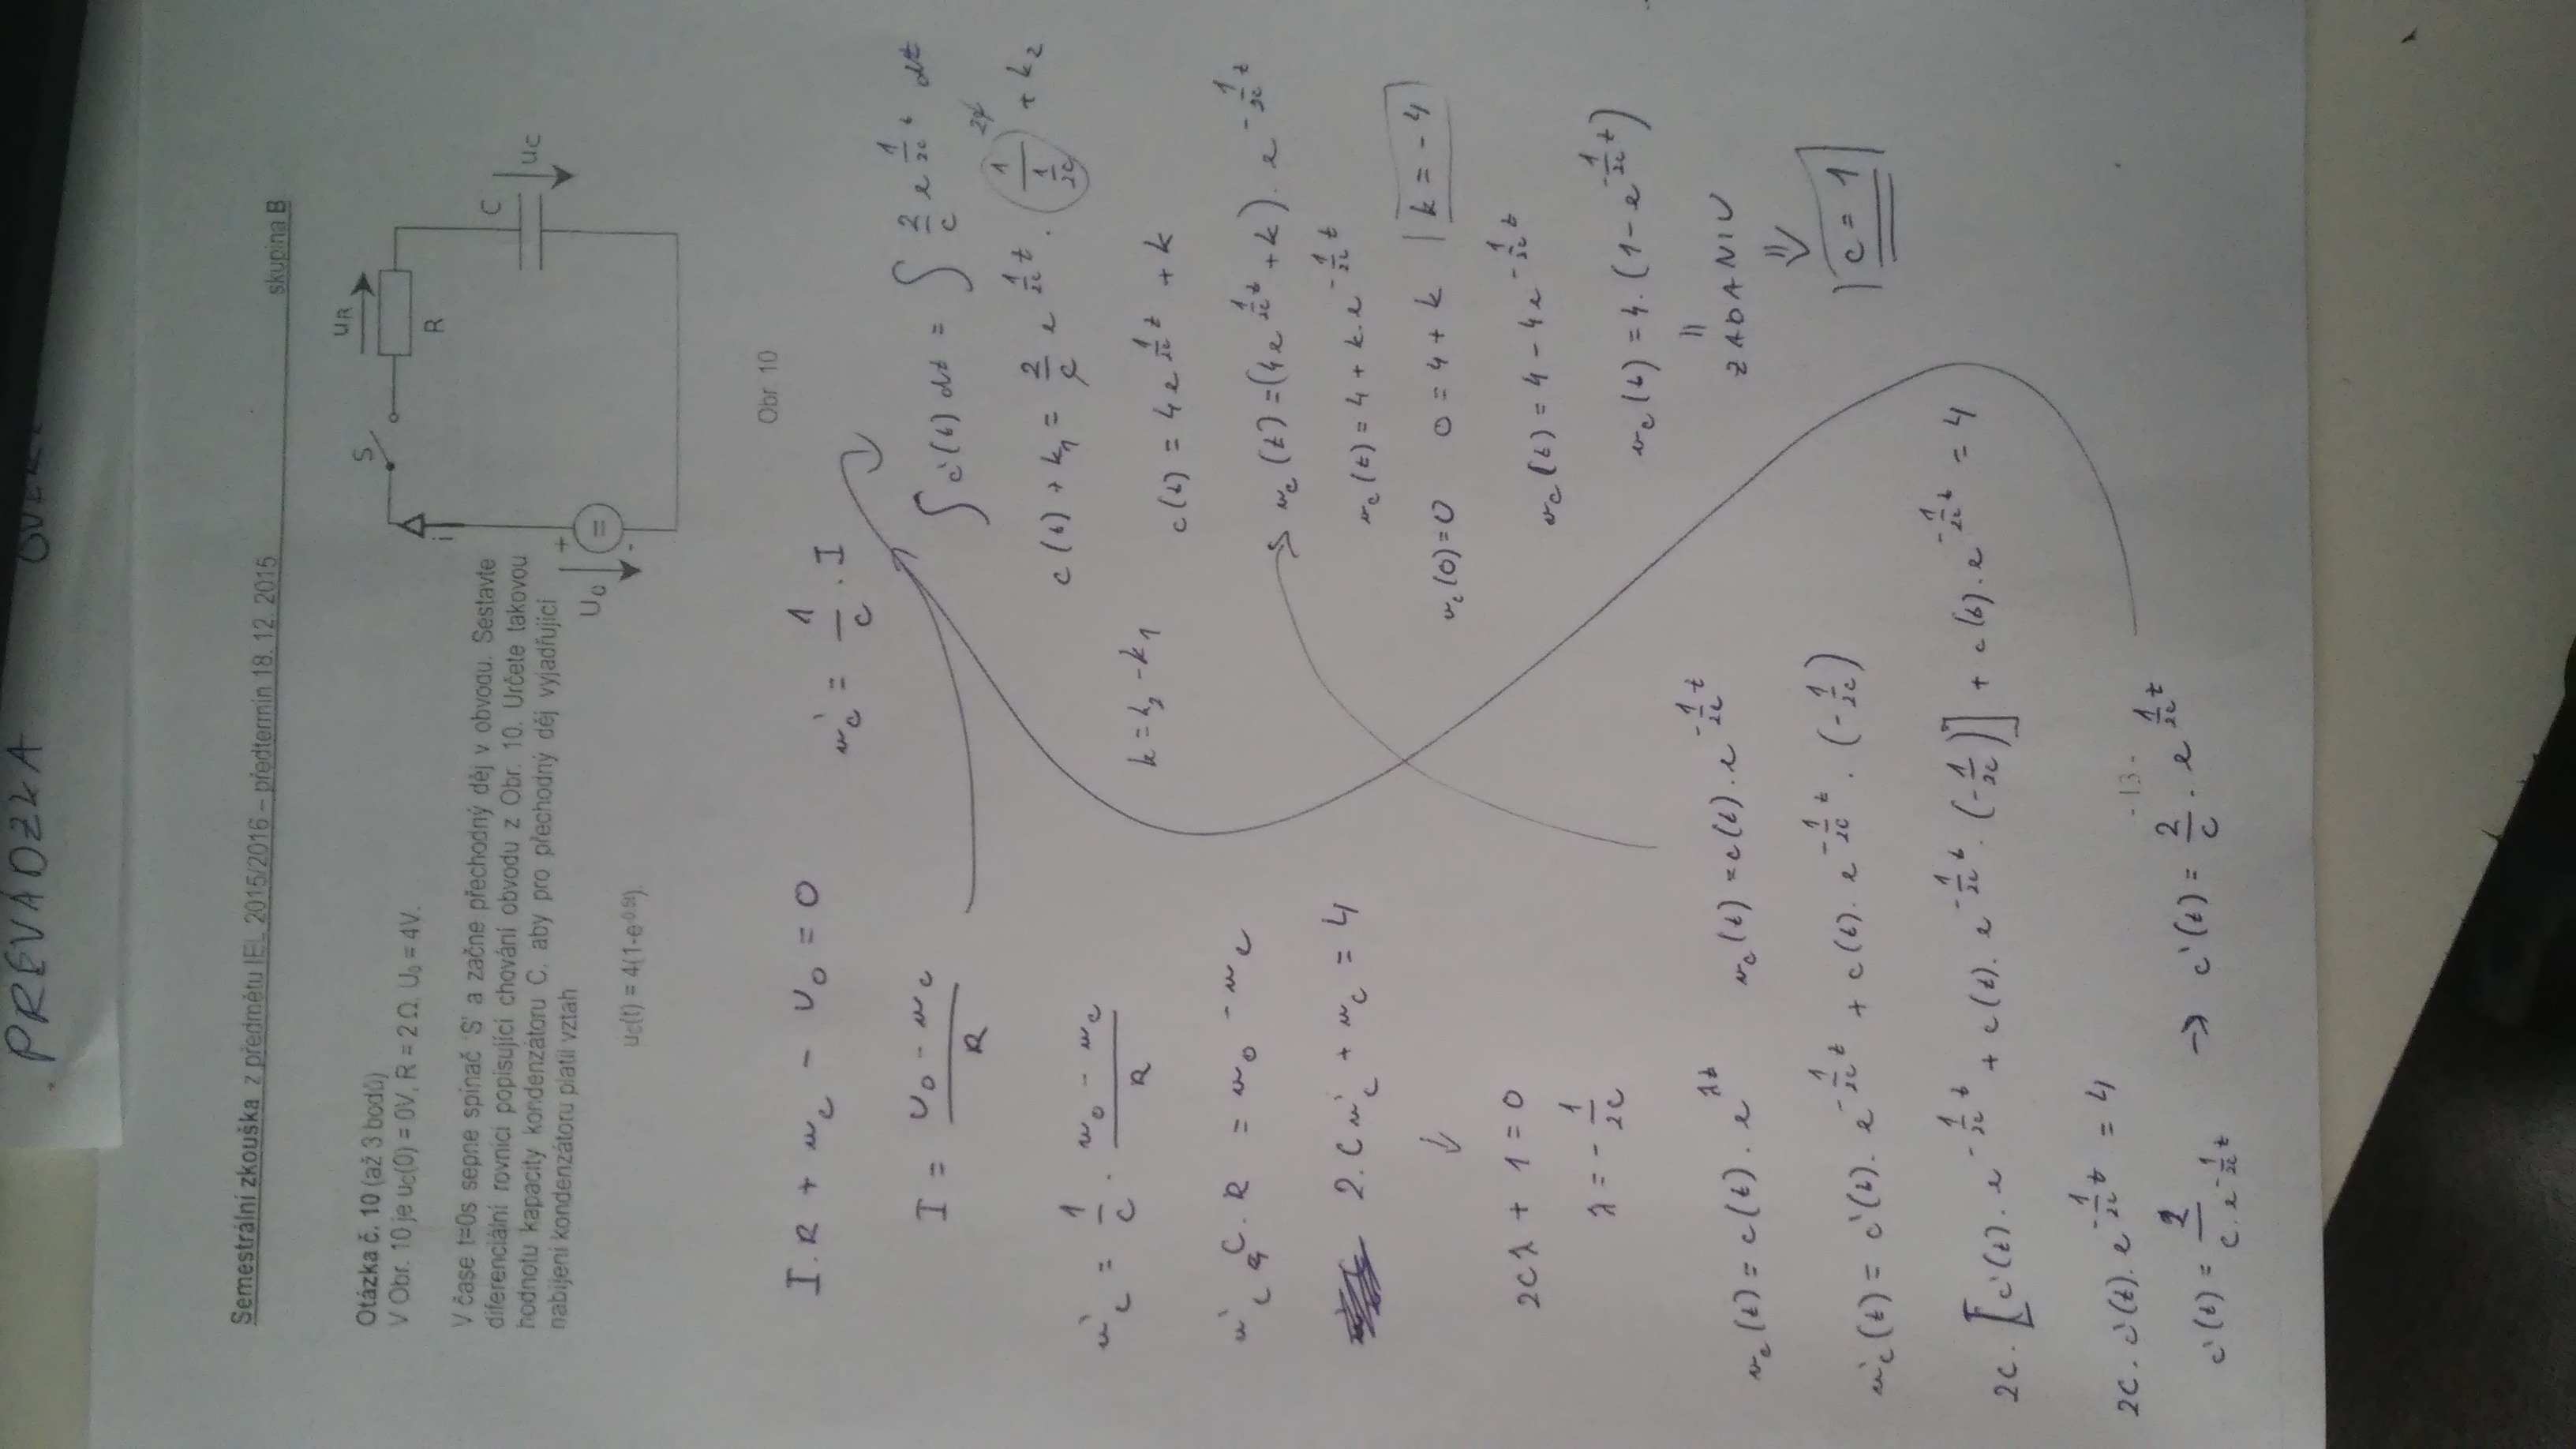 PREVÁDZKA
Semestrální zkouška z předmětu IEL 2015/2016 – předtermín 18. 12. 2015
skupina B
Otázka č. 10 (až 3 bodů)
V Obr. 10 je uC(0) = 0V, R = 2 Ω, U₀ = 4V.
V čase t=0s sepne spínač 'S' a začne přechodný děj v obvodu. Sestavte
diferenciální rovnici popisující chování obvodu z Obr. 10. Určete takovou
hodnotu kapacity kondenzátoru C, aby pro přechodný děj vyjadřující
nabíjení kondenzátoru platil vztah
uC(t) = 4(1-e^-0.5t).
S
uR
R
i
C
uC
U₀
+
=
-
Obr. 10
I.R + uc - U₀ = 0
uc' = 1/c . I
I = (U₀ - uc)/R
uc' = 1/c . (u₀ - uc)/R
uc' C.R = u₀ - uc
2.C uc' + uc = 4
↓
2cλ + 1 = 0
λ = - 1/2c
uc(t) = c(t) . e^λt
uc(t) = c(t) . e^(-1/2c t)
uc'(t) = c'(t) . e^(-1/2c t) + c(t) . e^(-1/2c t) . (-1/2c)
2c . [c'(t) . e^(-1/2c t) + c(t) . e^(-1/2c t) . (-1/2c)] + c(t) . e^(-1/2c t) = 4
2c . c'(t) . e^(-1/2c t) = 4
- 13 -
c'(t) = 2/(c . e^(-1/2c t)) → c'(t) = 2/c . e^(1/2c t)
∫ c'(t) dt = ∫ 2/c e^(1/2c t) dt
c(t) + k₁ = 2/c e^(1/2c t) . 1/(1/2c) 2c + k₂
k = k₂ - k₁
c(t) = 4e^(1/2c t) + k
uc(t) = (4e^(1/2c t) + k) . e^(-1/2c t)
uc(t) = 4 + k . e^(-1/2c t)
uc(0) = 0 0 = 4 + k | k = - 4
uc(t) = 4 - 4e^(-1/2c t)
uc(t) = 4 . (1 - e^(-1/2c t))
=
ZADANIU
⇓
c = 1